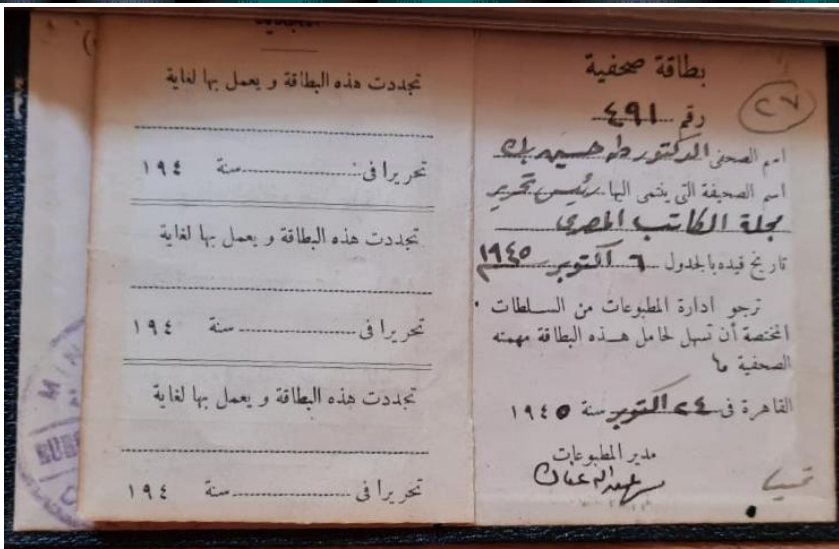 بطاقة صحفية
٢٧
رقم ٤٩١
اسم الصحفى الدكتور طه حسين بك
اسم الصحيفة التى ينتمى اليها رئيس تحرير
مجلة الكاتب المصرى
تاريخ قيده بالجدول ٦ أكتوبر ١٩٤٥
ترجو ادارة المطبوعات من السلطات
المختصة أن تسهل لحامل هذه البطاقة مهمته
الصحفية
القاهرة فى ٢٤ أكتوبر سنة ١٩٤٥
مدير المطبوعات
تجددت هذه البطاقة و يعمل بها لغاية
تحريرا فى سنة ١٩٤
تجددت هذه البطاقة و يعمل بها لغاية
تحريرا فى سنة ١٩٤
تجددت هذه البطاقة و يعمل بها لغاية
تحريرا فى سنة ١٩٤